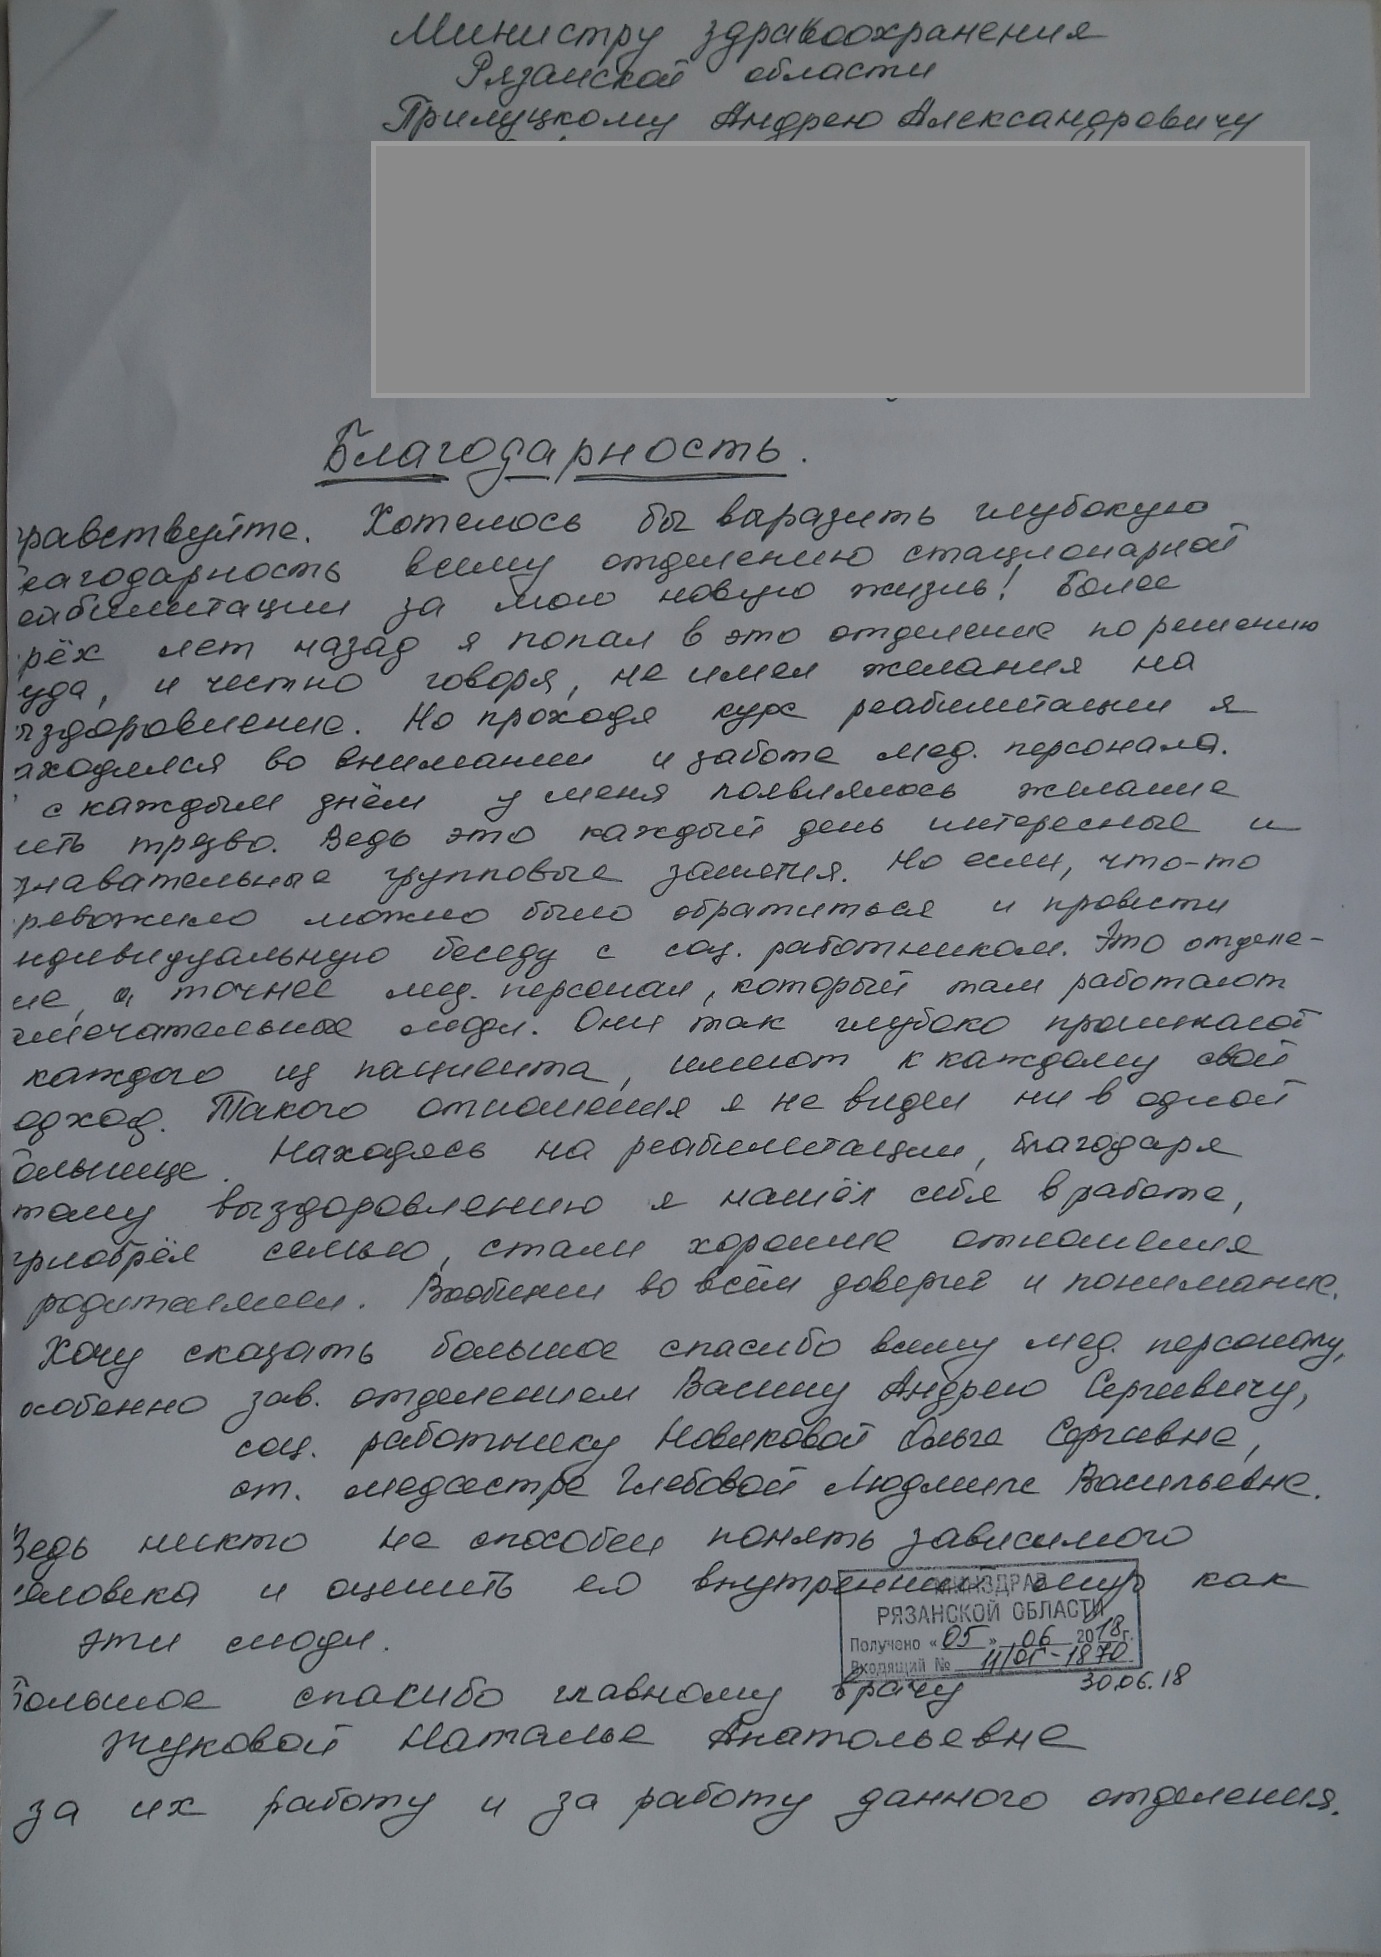 Министру здравоохранения
Рязанской области
Прилуцкому Андрею Александровичу
Благодарность.
дравствуйте. Хотелось бы выразить глубокую
лагодарность всему отделению стационарной
еабилитации за мою новую жизнь! Более
рёх лет назад я попал в это отделение по решению
уда, и честно говоря, не имел желания на
ыздоровление. Но проходя курс реабилитации я
аходился во внимании и заботе мед. персонала.
с каждым днём у меня появлялось желание
ить трезво. Ведь это каждый день интересные и
знавательные групповые занятия. Но если, что-то
ревожило можно было обратиться и провести
ндивидуальную беседу с соц. работником. Это отделе-
ие, а точнее мед. персонал, который там работают
амечательные люди. Они так глубоко проникают
каждого из пациента, имеют к каждому свой
одход. Такого отношения я не видел ни в одной
больнице. Находясь на реабилитации, благодаря
тому выздоровлению я нашёл себя в работе,
приобрёл семью, стали хорошие отношения
родителями. Вообщем во всём доверие и понимание.
Хочу сказать большое спасибо всему мед. персоналу,
особенно зав. отделением Васину Андрею Сергеевичу,
соц. работнику Новиковой Ольге Сергевне,
ст. медсестре Глебовой Людмиле Васильевне.
Ведь никто не способен понять зависимого
человека и оценить его внутренний мир как
эти люди.
МИНЗДРАВ
РЯЗАНСКОЙ ОБЛАСТИ
Получено «05» 06 2018г.
Входящий №
30.06.18
Большое спасибо главному врачу
Жуковой Наталье Анатольевне
за их работу и за работу данного отделения.